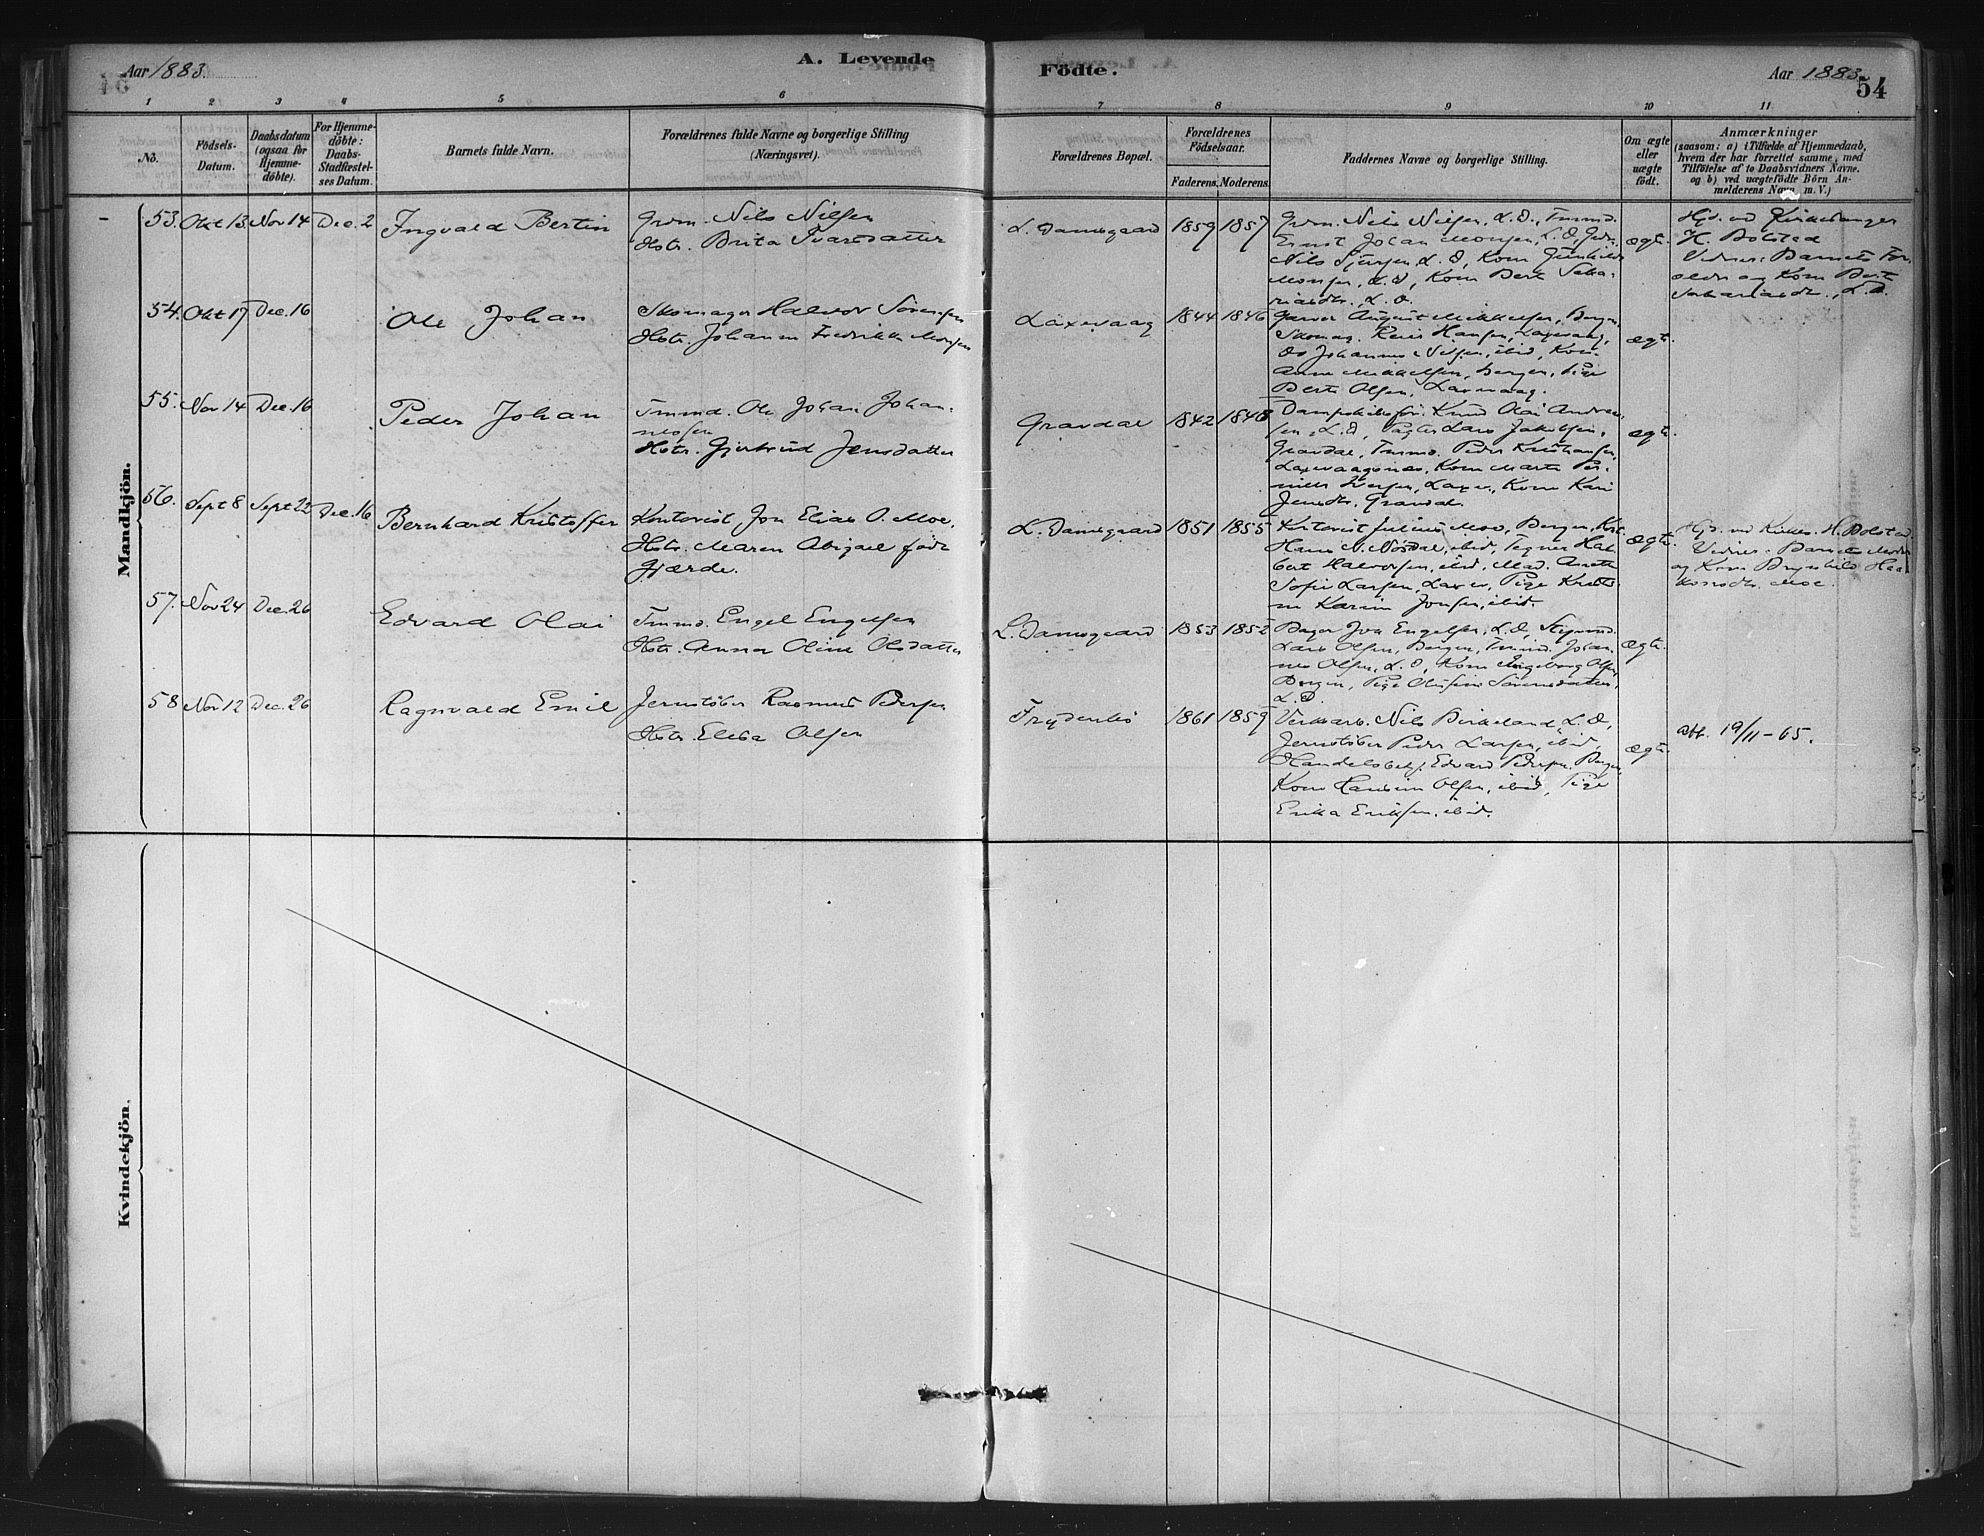 Aar 1883.
A. Levende
Födte.
Aar 1883.
54
1 2 3 4 5 6 7 8 9 10 11
No.
Födsels-
Datum.
Daabsdatum
(ogsaa for
Hjemme-
döbte).
For Hjemme-
döbte:
Daabs-
Stadfæstel-
ses Datum.
Barnets fulde Navn.
Forældrenes fulde Navne og borgerlige Stilling
(Næringsvei).
Forældrenes Bopæl.
Forældrenes
Födselsaar.
Faderens. Moderens.
Faddernes Navne og borgerlige Stilling.
Om ægte
eller
uægte
födt.
Anmærkninger
(saasom: a) i Tilfælde af Hjemmedaab,
hvem der har forrettet samme, med
Tilföielse af to Daabsvidners Navne.
og b) ved uægtefödte Börn An-
melderens Navn m. V.)
Mandkjön.
53. Okt 13 Nov 14 Dec. 2
Ingvald Bertin
Grdm. Nils Nilsen
Hstr. Brita Ivarsdatter
L. Damsgaard
1859 1857
Grdm. Nils Nilsen, L. D., Tmmd.
Ernst Johan Monsen, L. D., Grdm.
Nils Sjursen, L. D, Kone Gunhilde
Monsen, L. D, Kone Berit Saka-
riasdtr. L. D.
ægte.
Hjd. ved Kirkesanger
H. Bolstad
Vidner: Barnets For-
ældre og Kone Berit
Sakariasdtr., L. D.
54. Okt 17 Dec. 16
Ole Johan
Skomager Halvor Sörensen
Hstr. Johanne Fredrikke Monsen
Laxevaag
1844 1846
Garver August Mikkelsen, Bergen,
Skomag. Reier Hansen, Laxevaag,
Do Johannes Nilsen, ibid, Kone
Anne Mikkelsen, Bergen, Pige
Berte Olsen, Laxevaag.
ægte.
55. Nov 14 Dec. 16
Peder Johan
Tmmd. Ole Johan Johan-
nessen
Hstr. Gjertrud Jensdatter
Gravdal
1842 1848
Dampskibsför. Knud Olai Andrea-
sen, L. D, Lars Jakobsen,
Gravdal, Tmmd. Peder Kristiansen,
Laxevaagsnes, Kone Marte Per-
nille Iversen, Laxev., Kone Kari
Jensdtr. Gravdal.
ægte.
56. Sept 8 Sept 22 Dec. 16
Bernhard Kristoffer
Kontorist Jon Elias O. Moe.
Hstr. Maren Abigael född
Gjærde.
L. Damsgaard
1851 1855
Kontorist Julius Moe, Bergen, Kst
Hans N. Nösdal, ibid, Tegner Hal-
bert Halvorsen, ibid, Mad. Anette
Sofie Larsen, Laxev, Pige Kristi-
ne Karine Jonsen, ibid.
ægte.
Hjd. ved Kirkes. H. Bolstad
Vidner: Barnets Moder
og Kone Brynhild Haa-
konsdtr. Moe.
57. Nov 24 Dec. 26
Edvard Olai
Tmmd. Engel Engelsen
Hstr. Anna Oline Olsdatter
L. Damsgaard
1853 1852
Bager Jon Engelsen, L. D,
Lars Olsen, Bergen, Tmmd. Johan-
nes Olsen, L. D, Kone Ingeborg Olsen,
Bergen, Pige Olufine Sörensdatter,
L. D.
ægte.
58 Nov 12 Dec. 26
Ragnvald Emil
Jernstöber Rasmus Pedersen
Hstr. Elesa Olsen
Frydenbö
1861 1859
Verksarb. Nils Birkeland, L. D,
Jernstöber Peder Larsen, ibid,
Handelsbetj. Edvard Pedersen, Bergen,
Kone Hansine Olsen, ibid, Pige
Erika Eriksen, ibid.
ægte.
att. 19/11-65.
Kvindekjön.